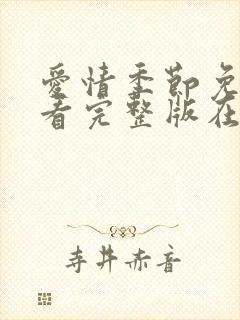 愛情季節免
看完整版在
寺井赤音